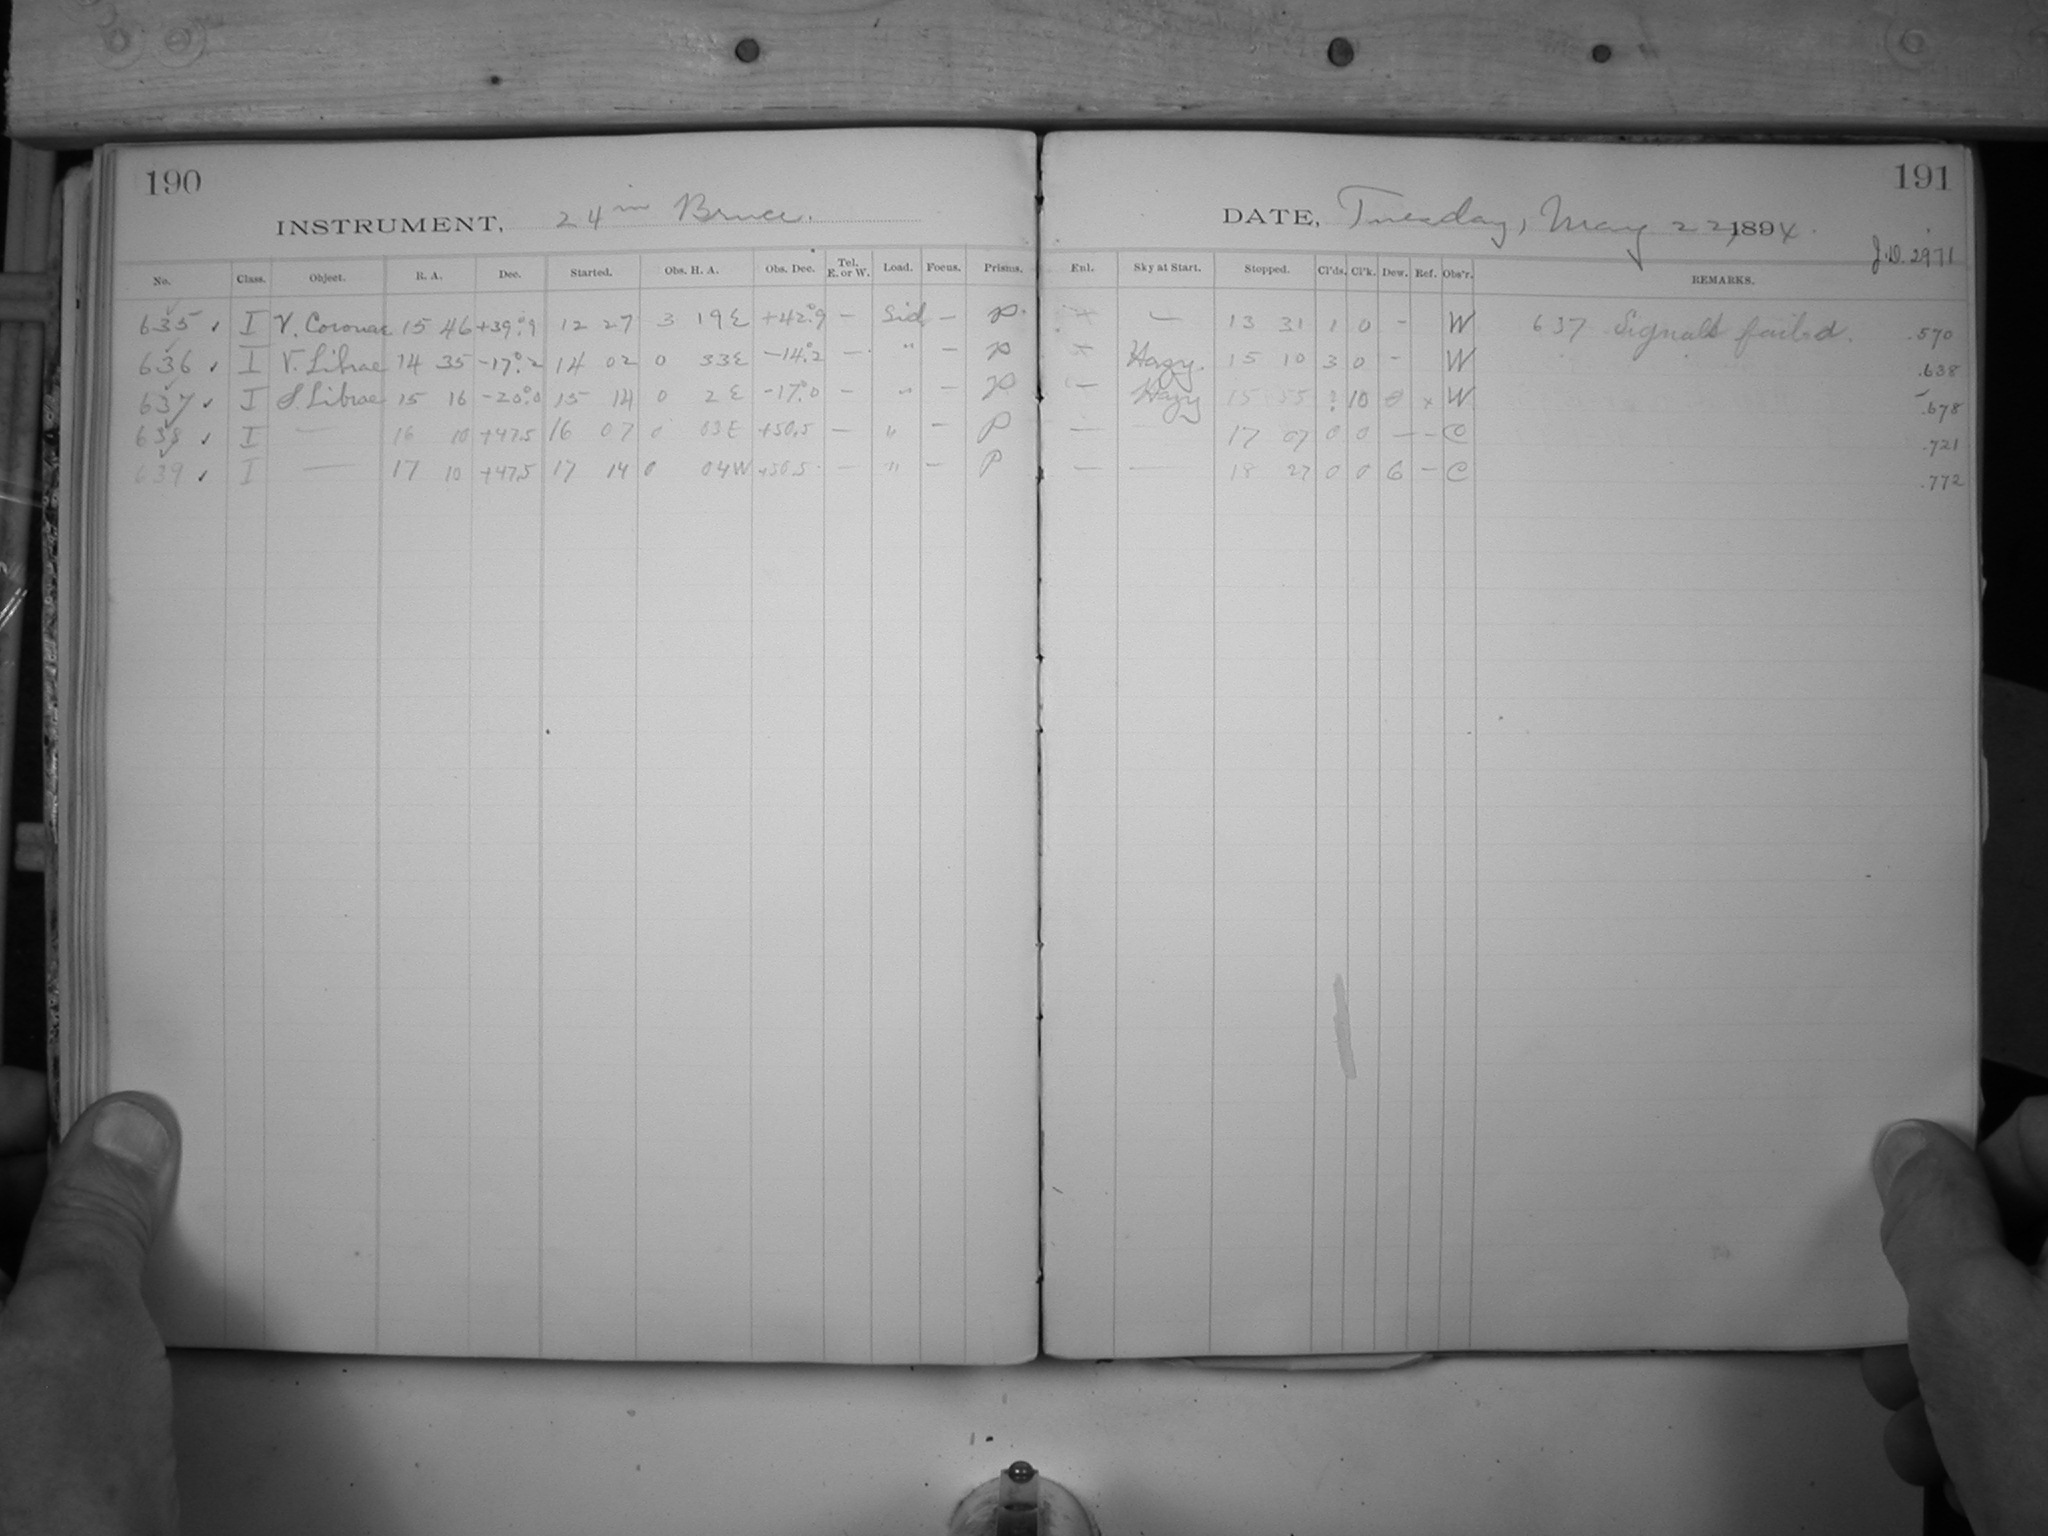 190
INSTRUMENT, 24 in Bruce.
No. Class. Object. R. A. Dec. Started. Obs. H. A. Obs. Dec. Tel. E. or W. Load. Focus. Prisms.
635 ✓ I V. Coronae 15 46 +39°.9 12 27 3 19 E +42°.9 — Sid — P.
636 ✓ I V. Librae 14 35 -17°.2 14 02 0 33 E -14°.2 — " — P
637 ✓ I S. Librae 15 16 -20°.0 15 14 0 2 E -17°.0 — " — P
638 ✓ I — 16 10 +47.5 16 07 0 03 E +50.5 — " — P
639 ✓ I — 17 10 +47.5 17 14 0 04 W +50.5 — " — P
191
DATE, Tuesday, May 22, 1894.
J.D. 2971
Enl. Sky at Start. Stopped. Cl'ds. Cl'k. Dew. Ref. Obs'r. REMARKS.
— 13 31 1 0 - W 637 Signals failed. .570
Hazy. 15 10 3 0 - W .638
— Hazy 15 55 ? 10 0 x W .678
— 17 07 0 0 — - C .721
— — 18 27 0 0 6 - C .772